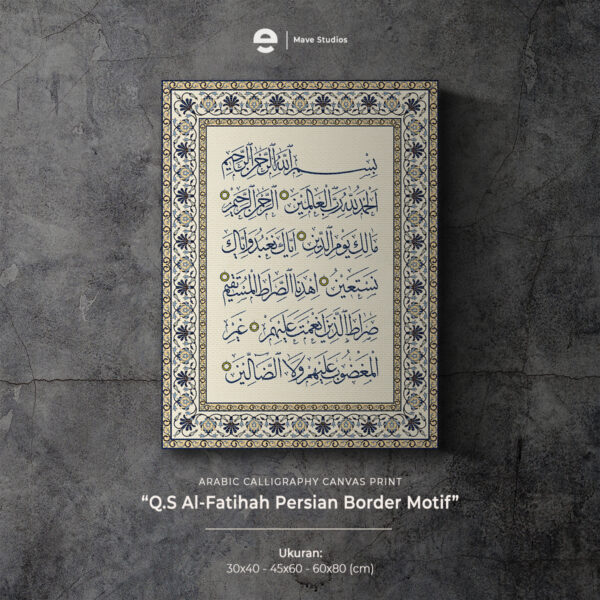 Mave Studios
بسم الله الرحمن الرحيم
الحمد لله رب العالمين الرحمن الرحيم
مالك يوم الدين اياك نعبد واياك
نستعين اهدنا الصراط المستقيم
صراط الذين انعمت عليهم غير
المغضوب عليهم ولا الضالين
ARABIC CALLIGRAPHY CANVAS PRINT
“Q.S Al-Fatihah Persian Border Motif”
Ukuran:
30x40 - 45x60 - 60x80 (cm)